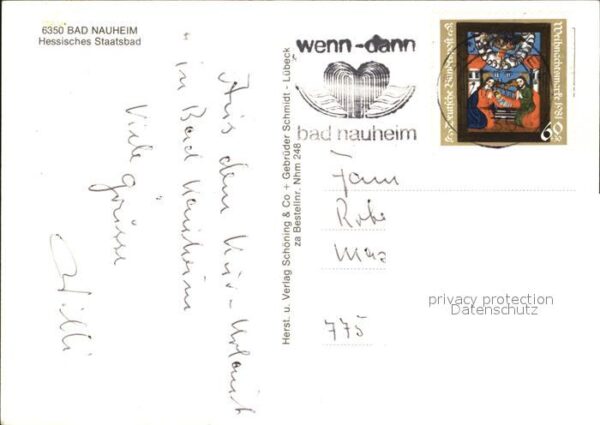 6350 BAD NAUHEIM
Hessisches Staatsbad
Aus dem Kur-Urlaub
in Bad Nauheim
Viele
Grüsse
Willi
Herst. u. Verlag Schöning & Co + Gebrüder Schmidt - Lübeck
za Bestellnr. Nhm 248
wenn-dann
bad nauheim
Deutsche Bundespost
Weihnachtsmarke 1981
60
Fam
775
privacy protection
Datenschutz